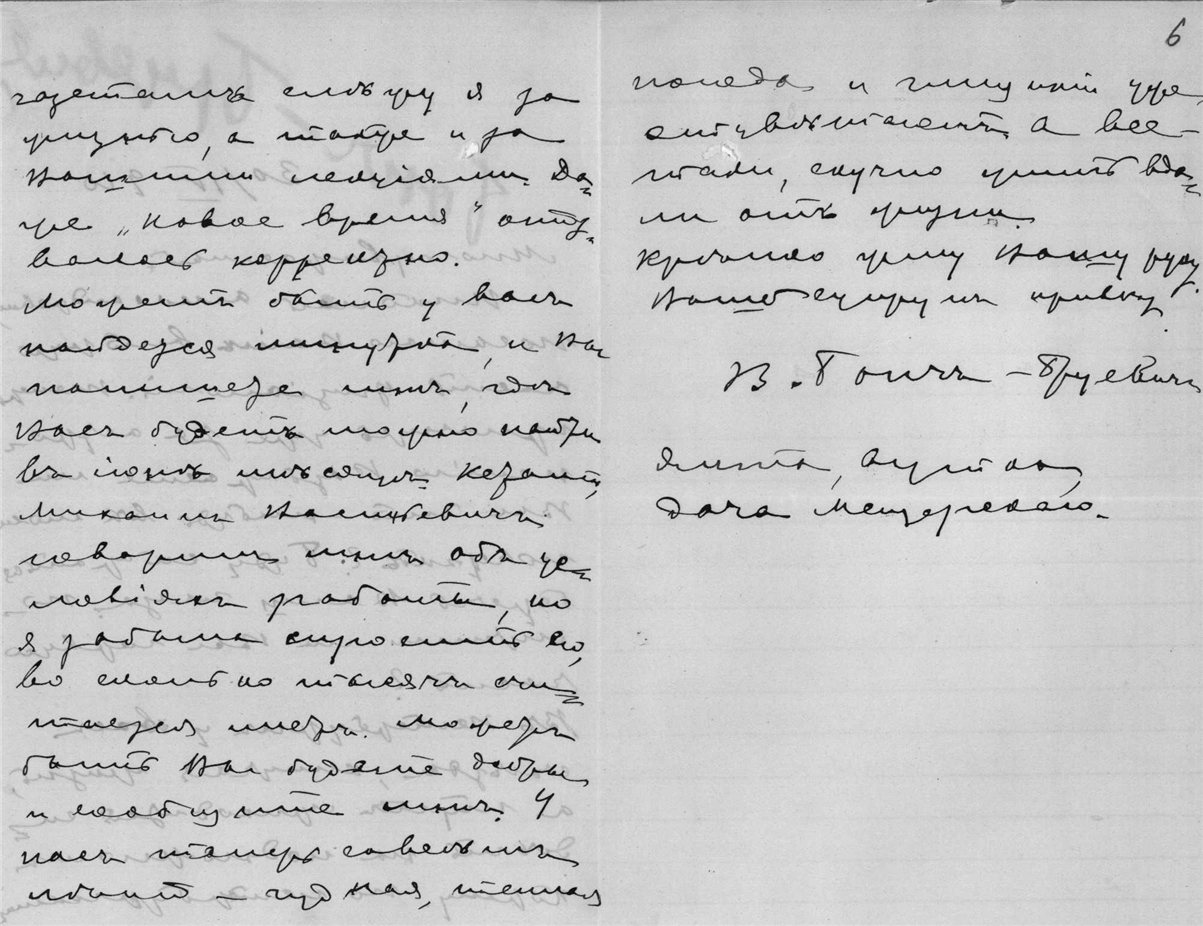 газетамъ слѣжу я за
жизнью, а также и за
Вашими лекціями. Да=
же „Новое Время“ отоз=
валось корректно.
Можетъ быть у васъ
найдется минутка, и Вы
напишете мнѣ, гдѣ
Васъ будетъ можно найти
въ іюнѣ мѣсяцѣ. Кстати,
Михаилъ Васильевичъ
говорилъ мнѣ объ ус=
ловіяхъ работы, но
я забыла спросить его,
во сколько тысячъ счи=
тается листъ. Можетъ
быть Вы будете добры
и сообщите мнѣ. У
насъ теперь совсѣмъ
лѣто – чудная, теплая
6
погода и лишній уже
отцвѣтаетъ, а все-
таки, скучно жить вда=
ли отъ жизни.
Крѣпко жму Вашу руку.
Вашей супругѣ привѣтъ.
В. Бончъ-Бруевичъ
Ялта, Аутка,
дача Мещерскаго.